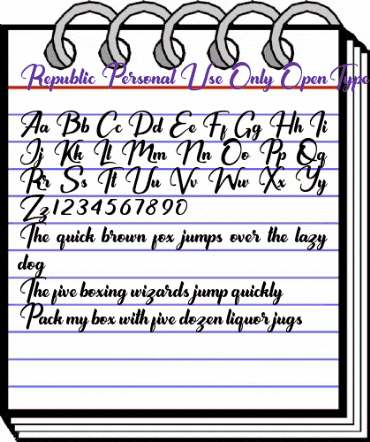 Republic Personal Use Only Open Type
Aa Bb Cc Dd Ee Ff Gg Hh Ii
Jj Kk Ll Mm Nn Oo Pp Qq
Rr Ss Tt Uu Vv Ww Xx Yy
Zz 1234567890
The quick brown fox jumps over the lazy
dog
The five boxing wizards jump quickly
Pack my box with five dozen liquor jugs